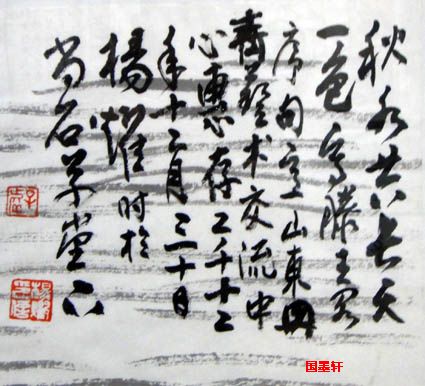 秋水共长天
一色 写滕王阁
序句 室山东
齐艺术交流中
心惠存 二千十二
年十二月三十日
杨耀时于
尚石草堂
国墨轩